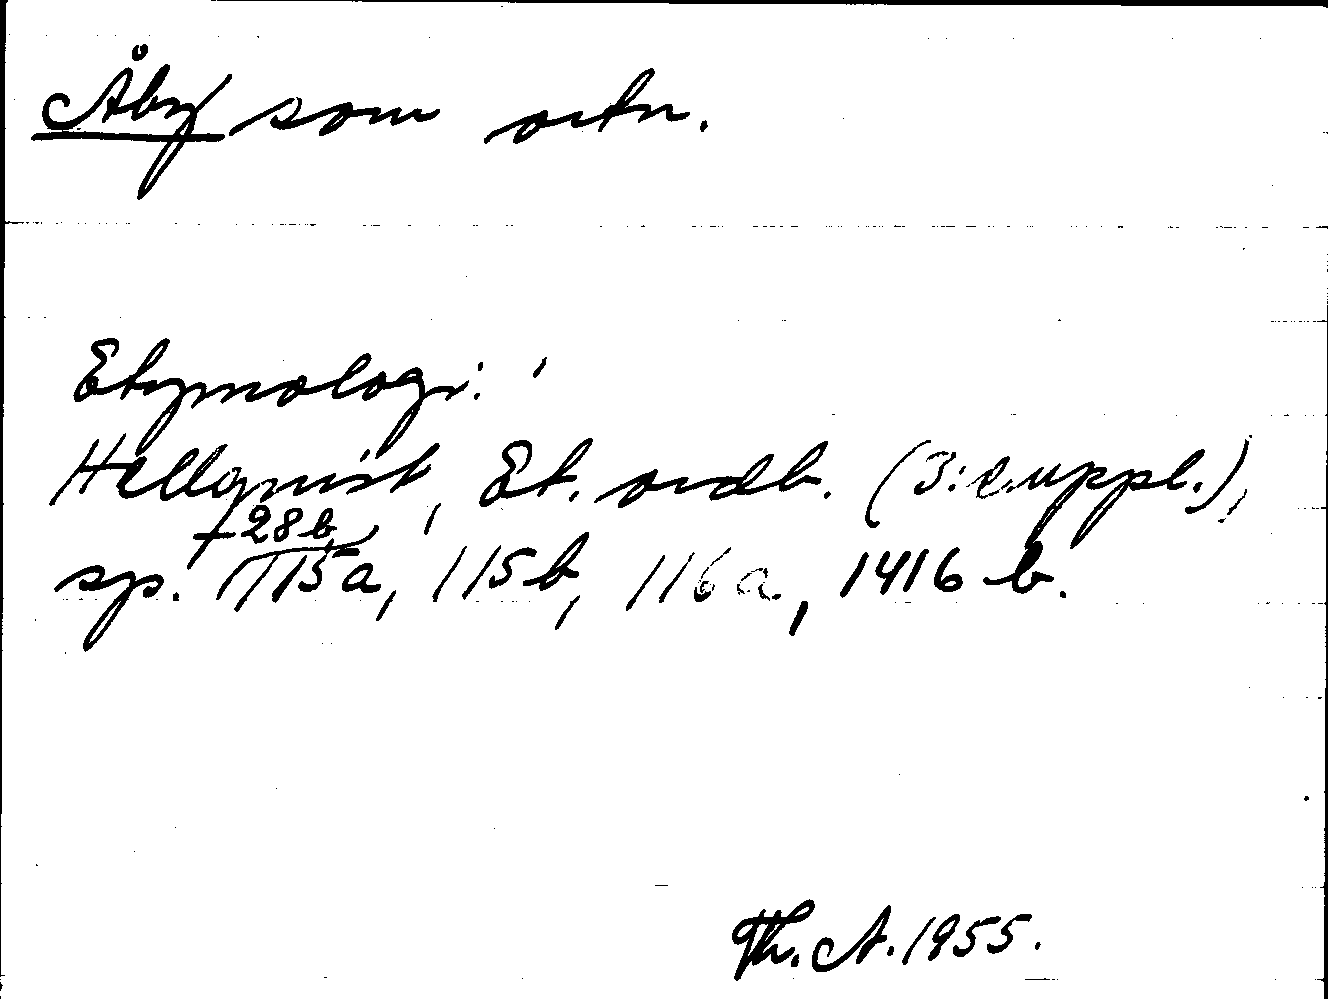 Åby som ortn.
Etymologi:
Hellqvist, Et. ordb. (3:e uppl.),
28b,
sp. 115a, 115b, 116a, 1416 b.
Th. A. 1955.